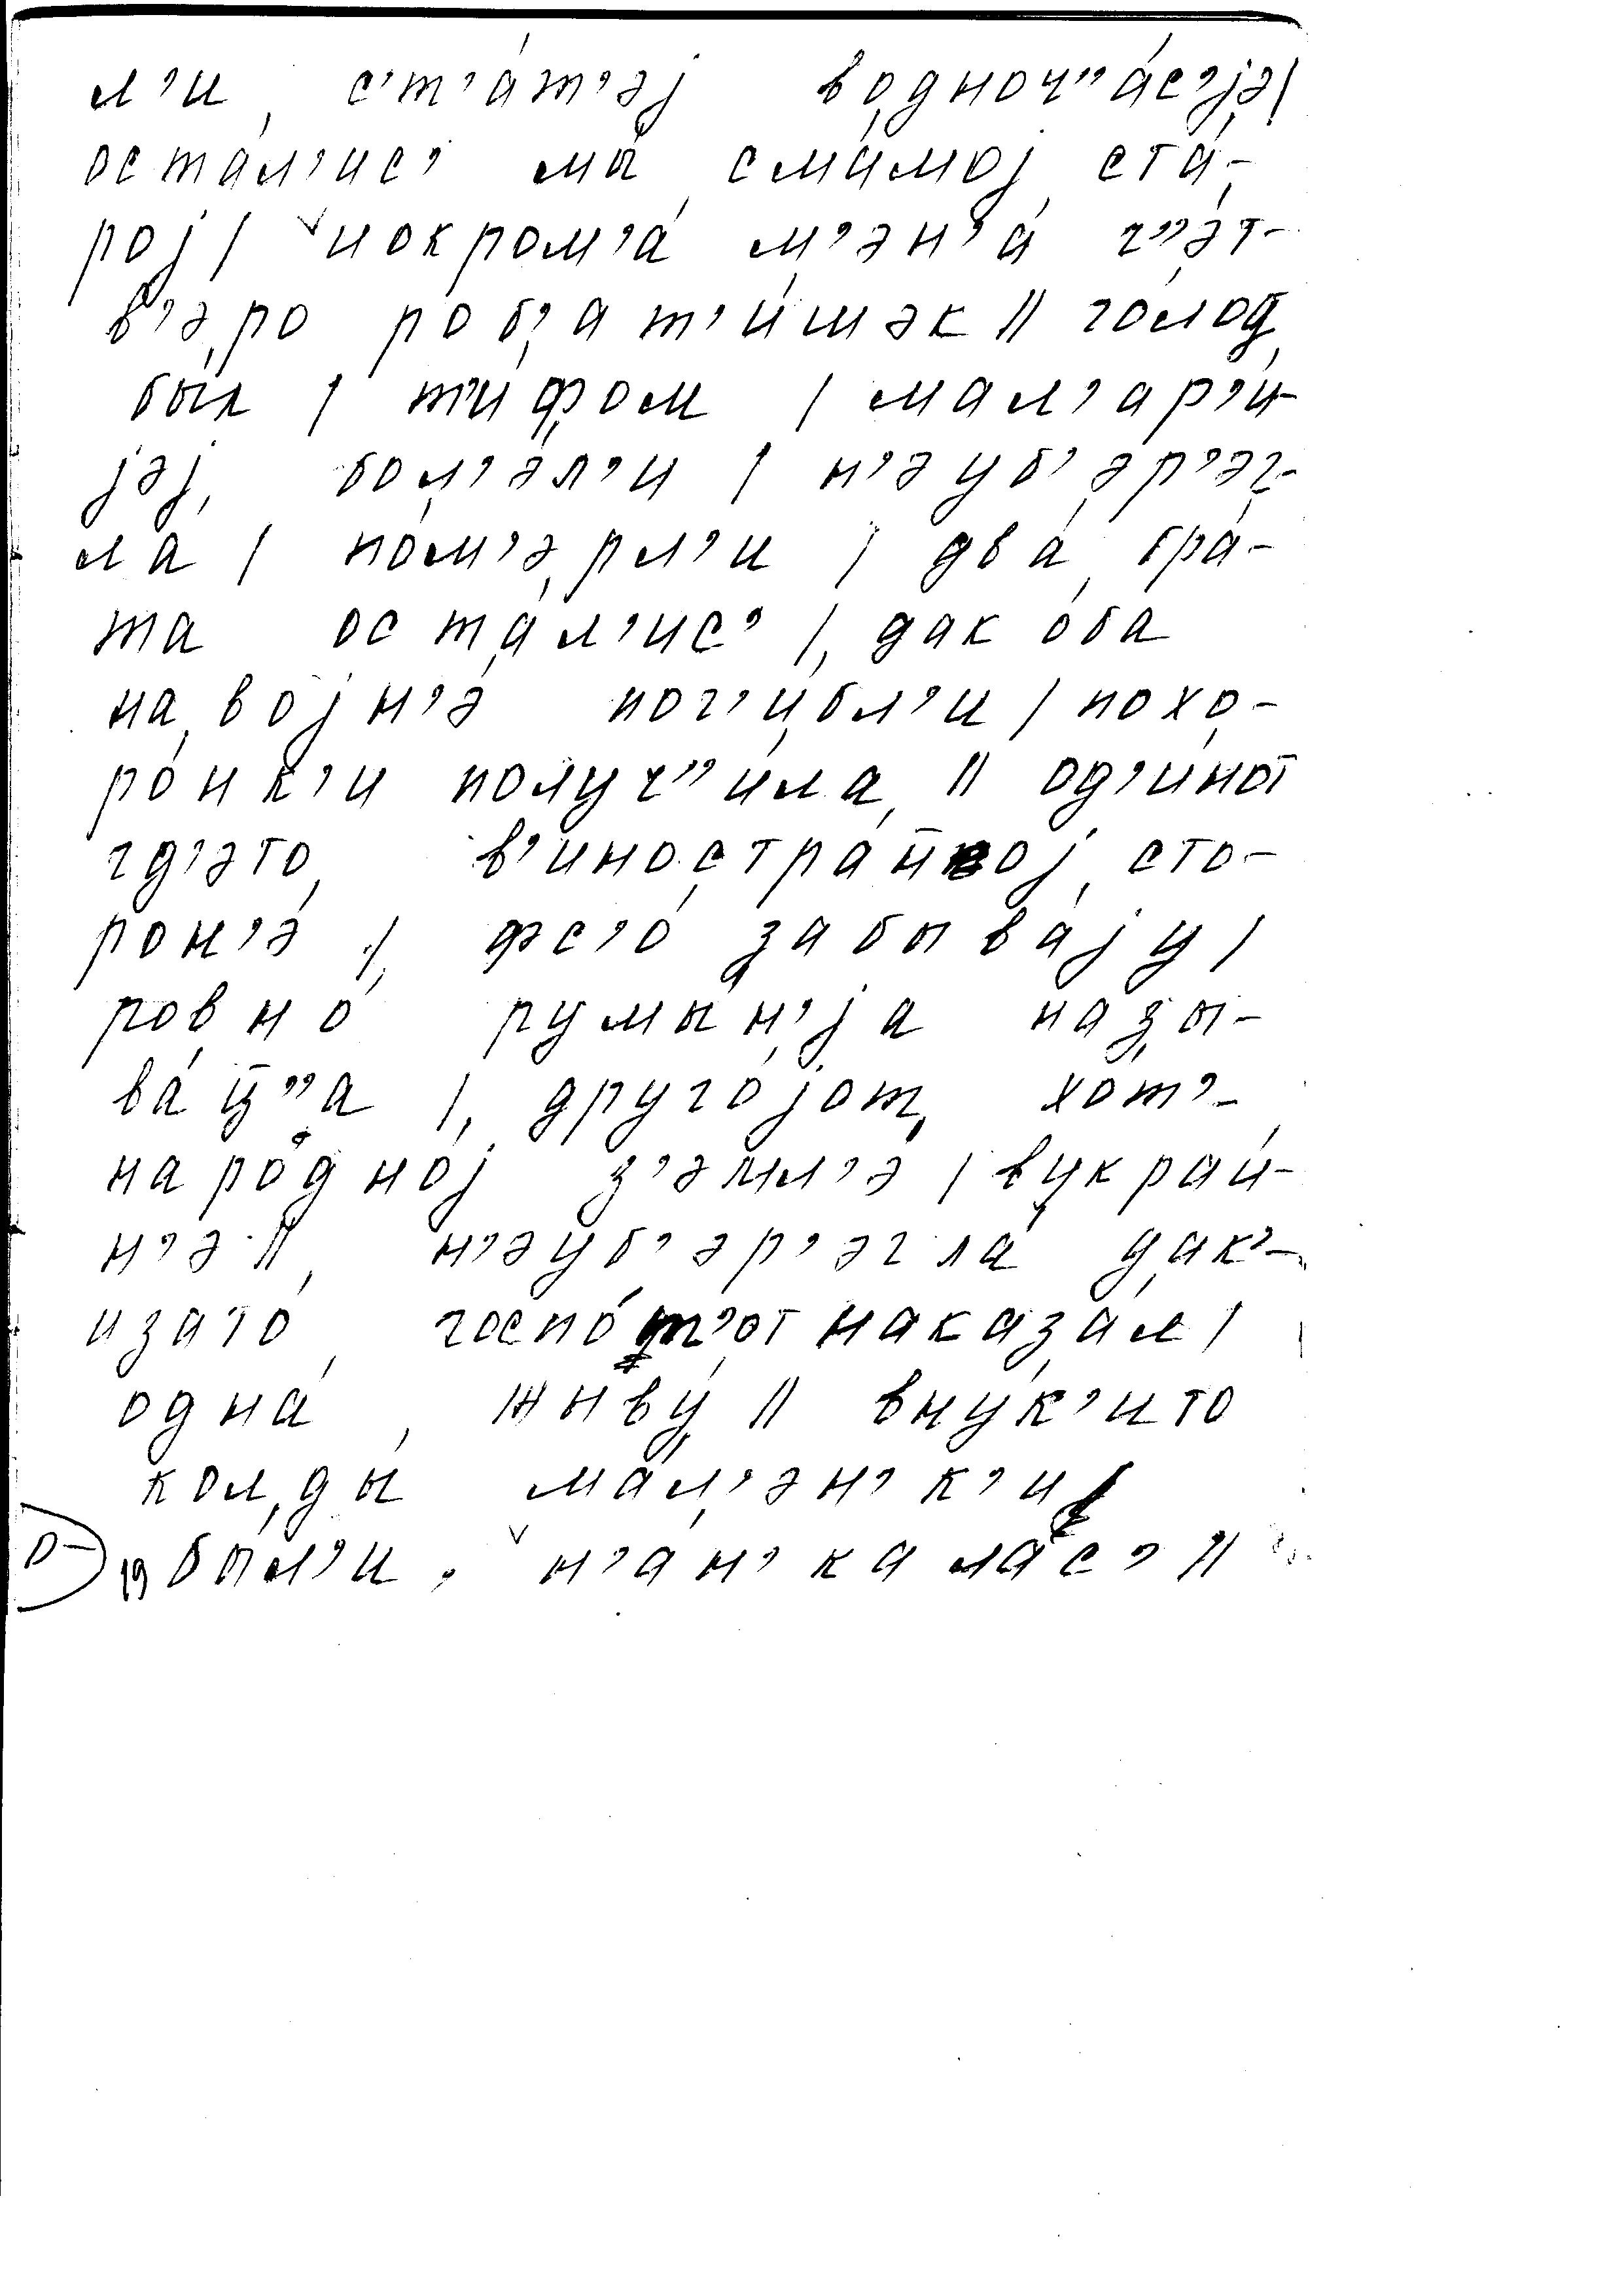 л’и с’т’а́т’эj водноч’’а́с’jэ|
оста́л’ис’ мы́ сма́моj ста́-
роj| иокром’а́ м’эн’а́ ч’’э́т-
в’эро роб’ат’и́шэк || го́лод
бы́л | т’и́фом | мал’ар’и́-
jэj бол’э́л’и | н’эуб’эр’эг-
ла́ | по́м’эрл’и | два́ бра́-
та оста́л’ис’ | дак о́ба
на воjн’э́ пог’и́бл’и | похо-
ро́нк’и получ’’и́ла || од’и́нот
гд’э́то в’иностра́н̄оj сто-
рон’э́ | фс’о́ забыва́jу |
ровно́ румы́н’jа назы-
ва́ц̄’’а | друго́jот хот’-
на ро́дноj з’эмл’э́ | вукраи́-
н’э || н’эуб’эр’эгла́ дак’-
изато́ госпо́т’от наказа́л |
одна́ жыву́ || вну́к’ито
колды́ ма́л’эн’к’и
бы́л’и н’а́н’калас’ ||
о-